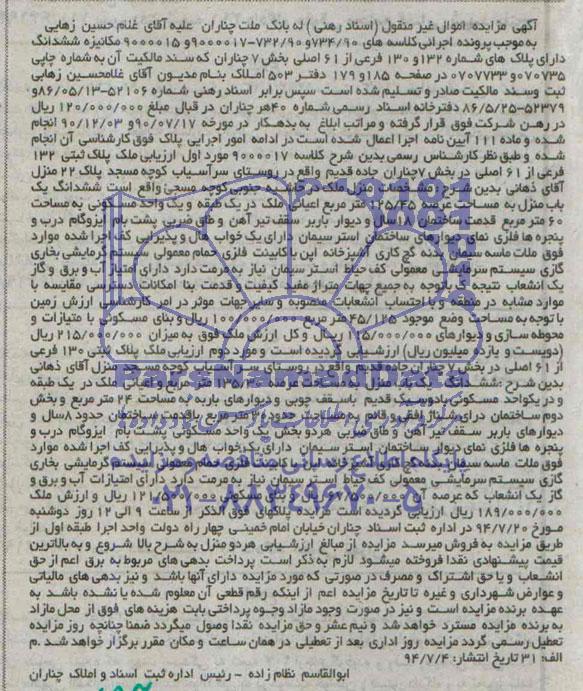 آگهی مزایده اموال غیر منقول (اسناد رهنی) له بانک ملت چناران علیه آقای غلام حسین زهایی
به موجب پرونده اجرائی کلاسه های ۷۳۴/۹۰و ۷۳۲/۹۰-۹۰۰۰۰۱۷و ۹۰۰۰۰۱۵ مکانیزه ششدانگ
دارای پلاک های شماره ۱۳۲و ۱۳۰ فرعی از ۶۱ اصلی بخش ۷ چناران که سند مالکیت آن به شماره چاپی
۰۷۰۷۳۵و ۰۷۰۷۷۳۳ در صفحه ۱۸۵و ۱۷۹ دفتر ۵۰۳ املاک بنام مدیون آقای غلامحسین زهایی
ثبت وسند مالکیت صادر و تسلیم شده است سپس برابر اسناد رهنی شماره ۵۲۱۰۶-۸۶/۰۵/۱۳و
۵۲۳۷۹-۸۶/۵/۲۵ دفترخانه اسناد رسمی شماره ۴۰هر چناران در قبال مبلغ ۱۲۰/۰۰۰/۰۰۰ ریال
در رهن شرکت فوق قرار گرفته و مراتب ابلاغ به بدهکار در مورخه ۹۰/۰۷/۱۷و ۹۰/۱۲/۰۳ انجام
شده و ماده ۱۱۱ آیین نامه اجرا اعمال شده است در ادامه امور اجرایی پلاک فوق کارشناسی آن انجام
شده و طبق نظر کارشناس رسمی بدین شرح کلاسه ۹۰۰۰۰۱۷ مورد اول ارزیابی ملک پلاک ثبتی ۱۳۲
فرعی از ۶۱ اصلی در بخش ۷چناران جاده قدیم واقع در روستای سرآسیاب کوچه مسجد پلاک ۲۲ منزل
آقای ذهانی بدین شرح : مشخصات منزل ملک در حاشیه جنوبی کوچه مسجد واقع است ششدانگ یک
باب منزل به مساحت عرصه متر مربع اعیانی ملک در یک طبقه و یک واحد مسکونی به مساحت
۶۰ متر مربع قدمت ساختمان ۱۸سال و دیوار باربر سقف تیر آهن و طاق ضربی پشت بام ایزوگام درب و
پنجره ها فلزی نمای دیوارهای ساختمان استر سیمان دارای یک خواب هال و پذیرایی کف اجرا شده موارد
فوق ملات ماسه سیمان بدنه گچ کاری آشپزخانه اپن با کابینت فلزی حمام معمولی سیستم گرمایشی بخاری
گازی سیستم سرمایشی معمولی کف حیاط استر سیمان نیاز به مرمت دارد دارای امتیاز آب و برق و گاز
یک انشعاب نتیجه گی باتوجه به جمیع جهات متراژ مفید کیفیت و قدمت بنا امکانات دسترسی مقایسه با
موارد مشابه در منطقه و با احتساب انشعابات منصوبه و سایر جهات موثر در امر کارشناسی ارزش زمین
با توجه به مساحت وضع موجود ۴۵/۱۲۵ متر مربع ۱۰۰/۰۰۰/۰۰۰ ریال و بنای مسکونی با متیازات و
محوطه سازی و دیوارهای ۱۱۵/۰۰۰/۰۰۰ ریال و کل ارزش ملک فوق به میزان ۲۱۵/۰۰۰/۰۰۰ ریال
(دویست و یازده میلیون ریال) ارزشیابی گردیده است و مورد دوم ارزیابی ملک پلاک ثبتی ۱۳۰ فرعی
از ۶۱ اصلی در بخش ۷ چناران جاده قدیم واقع در روستای سرآسیاب کوچه مسجد منزل آقای ذهانی
بدین شرح :ششدانگ یک باب منزل به مساحت عرصه متر مربع واعیانی ملک در یک طبقه
و در یکواحد مسکونی بادوسبک قدیم باسقف چوبی و دیوارهای باربر به مساحت ۲۴ متر مربع و بخش
دوم ساختمان دارای شناژ افقی و قائم به مساحت حدود۳۶ متر مربع باقدمت ساختمان حدود ۸سال و
دیوارهای باربر سقف تیر آهن و طاق ضربی هردو بخش یک واحد مسکونی پشت بام ایزوگام درب و
پنجره ها فلزی نمای دیوار ساختمان استر سیمان دارای یک خواب هال و پذیرایی کف اجرا شده موارد
فوق ملات ماسه سیمان
گازی سیستم سرمایشی معمولی کف حیاط استر سیمان نیاز به مرمت دارد دارای امتیازات آب و برق و
گاز یک انشعاب که عرصه ریال و ارزش ملک
۱۸۹/۰۰۰/۰۰۰ ریال ارزیابی گردیده است پلاکهای فوق الذکر از ساعت ۹ الی ۱۲ روز دوشنبه
مورخ ۹۴/۷/۲۰ در اداره ثبت اسناد چناران خیابان امام خمینی چهار راه دولت واحد اجرا طبقه اول از
طریق مزایده به فروش میرسد مزایده از مبالغ ارزشیابی هردو منزل به شرح بالا شروع و به بالاترین
قیمت پیشنهادی نقدا فروخته میشود لازم به ذکر است پرداخت بدهی های مربوط به برق اعم از حق
انشعاب و یا حق اشتراک و مصرف در صورتی که مورد مزایده دارای آنها باشد و نیز بدهی های مالیاتی
و عوارض شهرداری و غیره تا تاریخ مزایده اعم از اینکه رقم قطعی آن معلوم شده یا نشده باشد به
عهده برنده مزایده است و نیز در صورت وجود مازاد وجوه پرداختی بابت هزینه های فوق از محل مازاد
به برنده مزایده مسترد خواهد شد و نیم عشر و حق مزایده نقدا وصول میگردد ضمنا چنانچه روز مزایده
تعطیل رسمی گردد مزایده روز اداری بعد از تعطیلی در همان ساعت و مکان مقرر برگزار خواهد شد .م
الف: ۳۱ تاریخ انتشار: ۹۴/۷/۴
ابوالقاسم نظام زاده - رئیس اداره ثبت اسناد و املاک چناران
ParsNamadData
۰۲۱-۸۸۳۴۹۶۷۰-۵